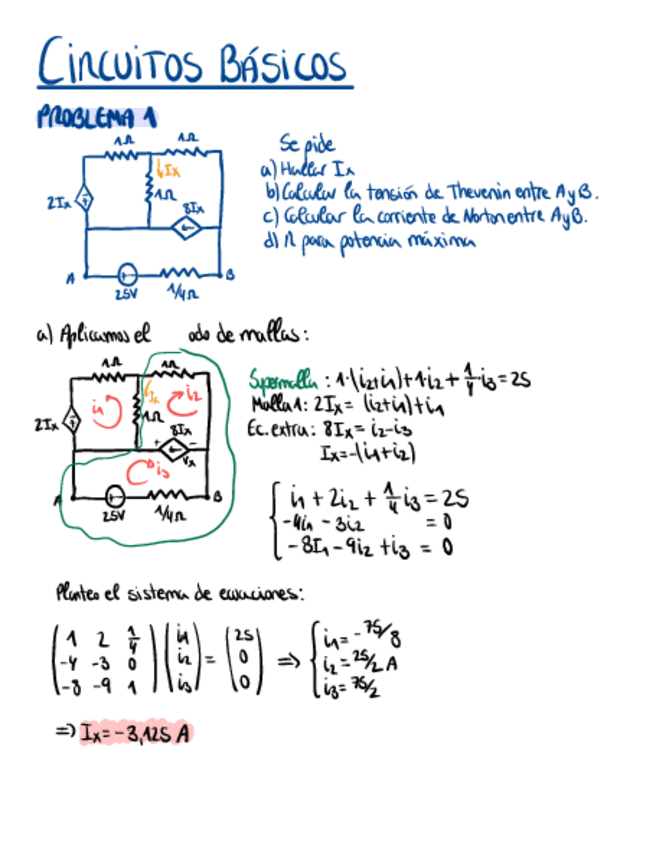 CIRCUITOS BÁSICOS
PROBLEMA 1
1Ω 1Ω
Ix
2Ix 1Ω
8Ix
A B
25V 1/4Ω
Se pide
a) Hallar Ix
b) Calcular la tensión de Thevenin entre A y B.
c) Calcular la corriente de Norton entre A y B.
d) R para potencia máxima
a) Aplicamos el odo de mallas:
1Ω 1Ω
Ix i2
i1 1Ω
2Ix 8Ix
+ -
Vx
i3
A B
25V 1/4Ω
Supermalla: 1·(i2+i1)+1·i2+1/4·i3=25
Malla1: 2Ix= (i2+i1)+i1
Ec. extra: 8Ix= i2-i3
Ix=-(i1+i2)
i1 + 2i2 + 1/4 i3 = 25
-4i1 - 3i2 = 0
-8I1 - 9i2 + i3 = 0
Planteo el sistema de ecuaciones:
1 2 1/4 i1 25 i1= -75/8
-4 -3 0 i2 = 0 => i2= 25/2 A
-8 -9 1 i3 0 i3= 75/2
=> Ix= -3,125 A